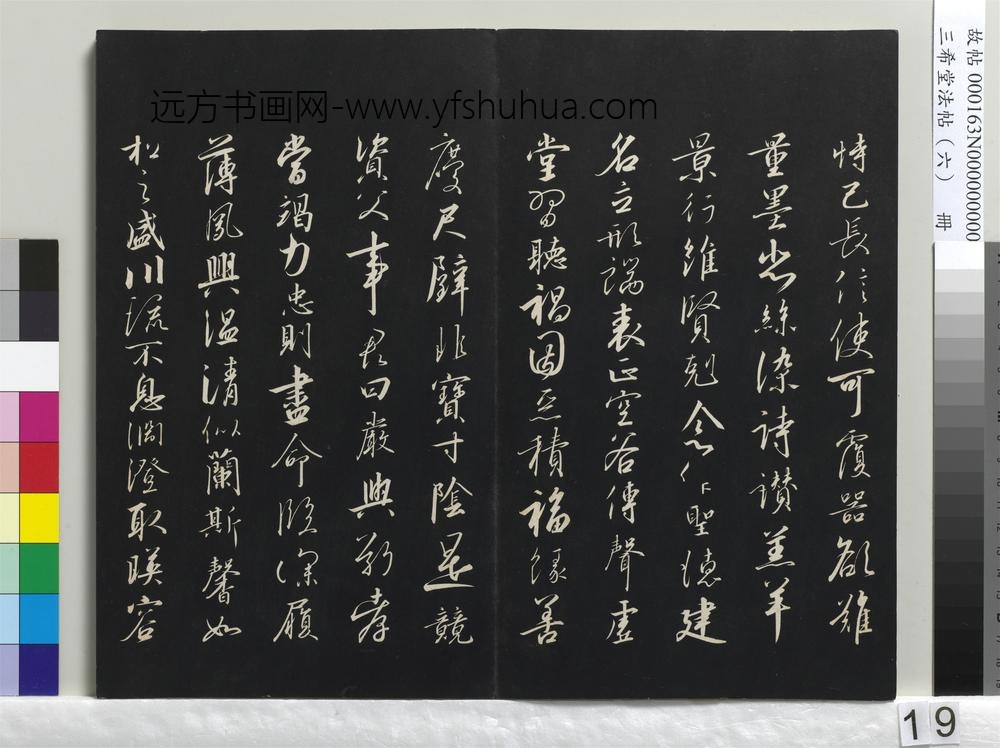 恃己長信使可覆器欲難
量墨悲絲染詩讚羔羊
景行維賢剋念作聖德建
名立形端表正空谷傳聲虛
堂習聽禍因惡積福緣善
慶尺璧非寶寸陰是競
資父事君曰嚴與敬孝
當竭力忠則盡命臨深履
薄夙興溫清似蘭斯馨如
松之盛川流不息淵澄取暎容
远方书画网-www.yfshuhua.com
故帖 000163N000000000
三希堂法帖（六） 冊
19